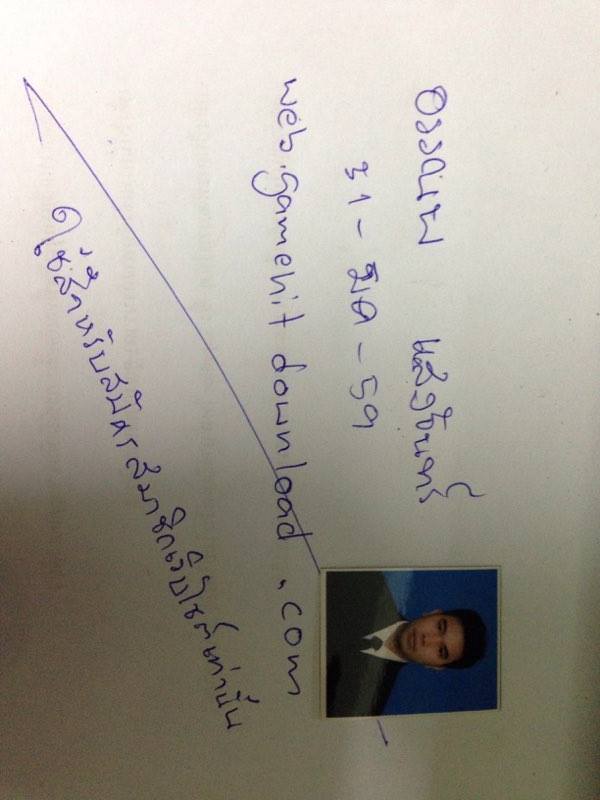 อรรถนพ แสงจันทร์
31 - มีค - 59
web.gamehit download .com
ใช้สำหรับสมัครสมาชิกเว็บไซต์เท่านั้น